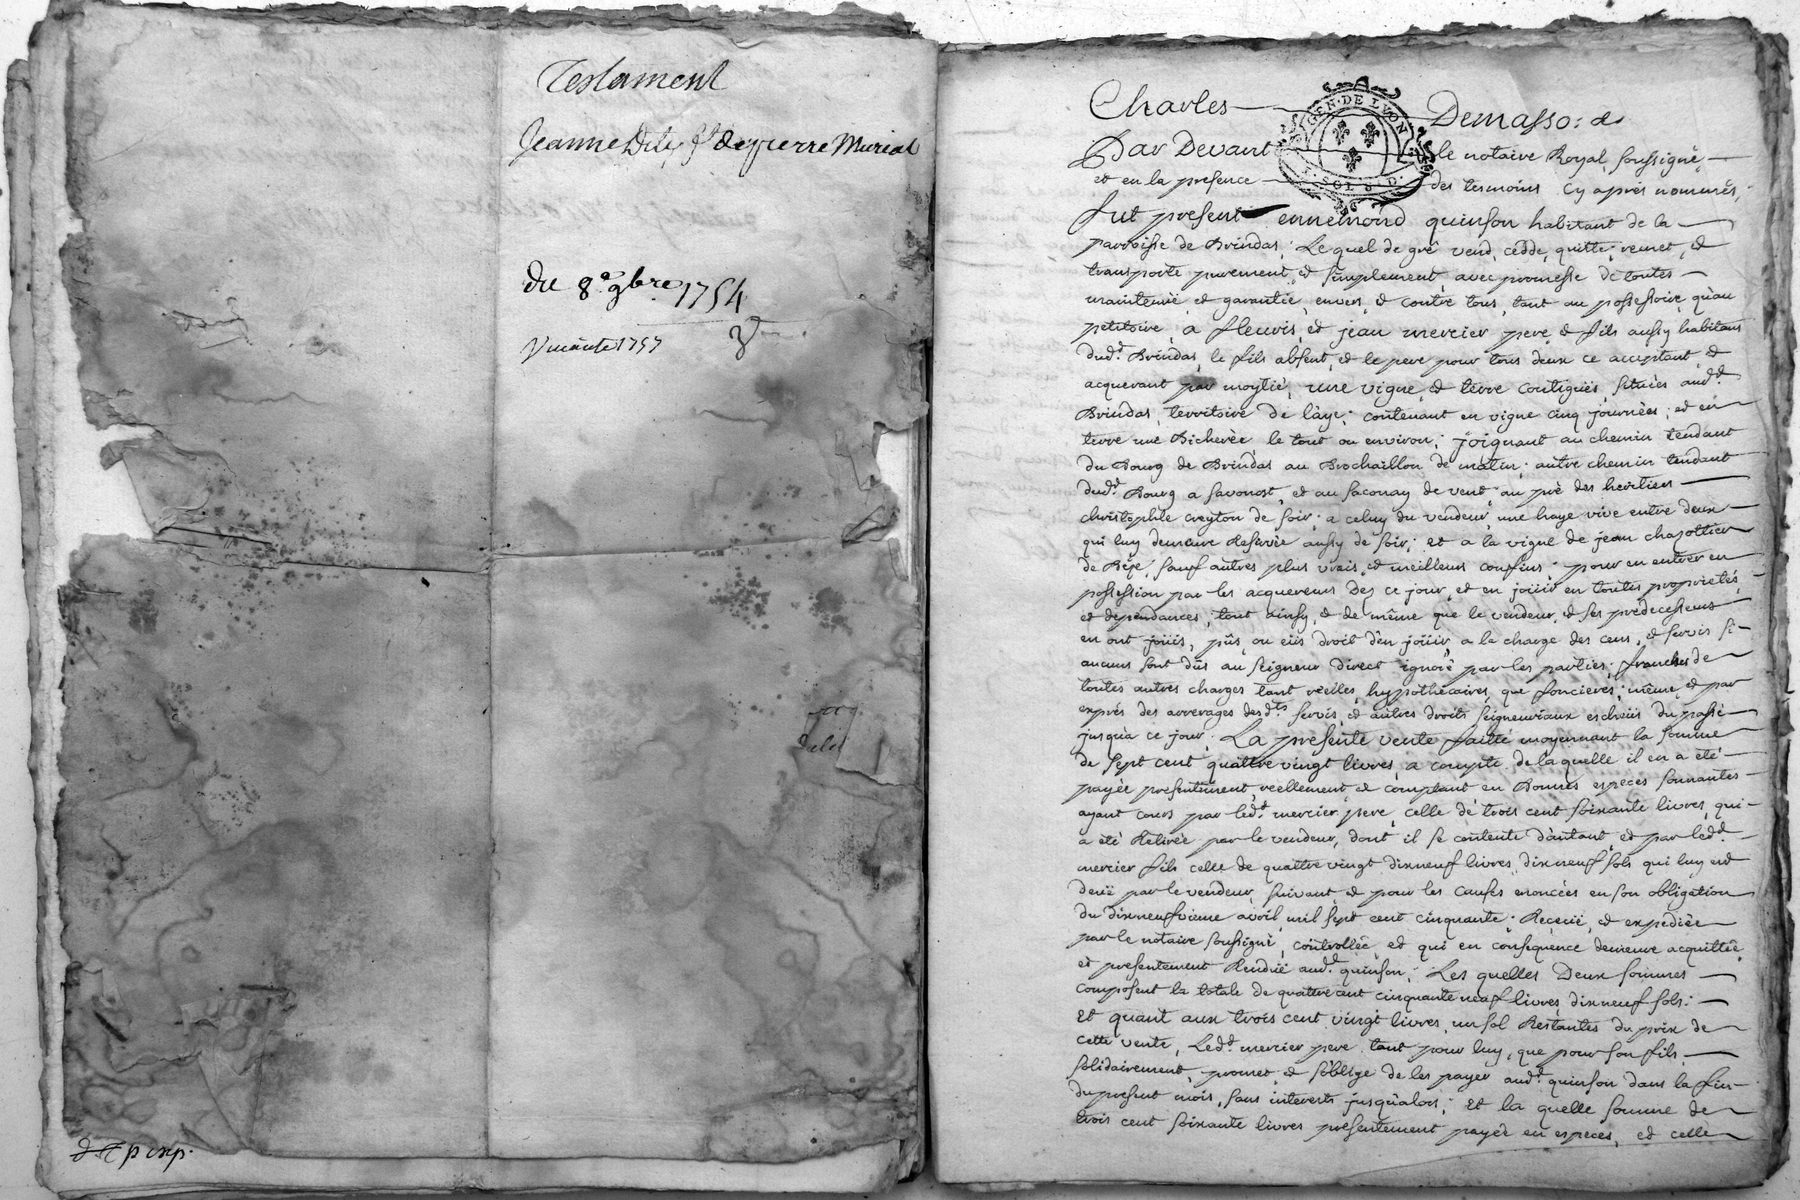 Testament
Jeanne de pierre Muriat
du 8e 9bre 1754
1757
Charles Demasso: de
GEN·DE LYON
SOL D.
Par Devant le notaire Royal soussigné
et en la presence des tesmoins cy aprés nommés,
fut present ennemond quinson habitant de la
parroisse de Brindas; Lequel de gré vend, cedde, quitte, remet, et
transporte purement et simplement, avec promesse de toutes
maintenüe et garantie, envers et contre tous, tant au possessoire qu'au
petitoire, à fleuris et jean mercier pere et fils aussy habitans
dud.t Brindas, le fils absent, et le pere pour tous deux ce acceptant et
acquerant par moytié, une vigne et terre contigües, situées aud.t
Brindas, territoire de laye; contenant en vigne cinq journées, et en
terre une Bicherée le tout ou environ; joignant au chemin tendant
du Bourg de Brindas au Brochaillon de matin; autre chemin tendant
dud.t Bourg a savonost, et au saconay de vent; au pré des heritiers
christophle creyton de soir; a celuy du vendeur, une haye vive entre deux
qui luy demeure Reservée aussy de soir; et a la vigne de jean chazottier
de Bize, sauf autres plus vrais et meilleurs confins; pour en entrer en
possession par les acquereurs Dez ce jour, et en joüiir en toutes proprietés,
et dependances, tout ainsy et de même que le vendeur et ses predecesseurs
en ont joüis, pûs, ou eüs droit d'en joüiir, a la charge des cens et servis si
aucuns sont dûs au seigneur direct ignoré par les parties; franches de
toutes autres charges tant réelles, hypothécaires, que foncieres; même et par
exprés des arrerages desd.ts servis, et autres droits seigneuriaux escheüs du passé
jusqu'a ce jour. La presente vente faitte moyennant la somme
de sept cent quattre vingt livres, a compte de laquelle il en a été
payée presentement, reellement et comptant en Bonnes especes sonnantes
ayant cours par led.t mercier pere, celle de trois cent soixante livres, qui
a été Retirée par le vendeur, dont il se contente d'autant, et par led.t
mercier fils celle de quattre vingt dixneuf livres, dixneuf sols qui luy est
deüe par le vendeur, suivant et pour les causes enoncées en son obligation
du dixneufvieme avril mil sept cent cinquante; Receüe et expediée
par le notaire soussigné, controllée, et qui en consequence demeure acquittée
et presentement Rendüe aud.t quinson; Les quelles Deux sommes
composent la totale de quattre cent cinquante neuf livres dixneuf sols;
Et quant aux trois cent vingt livres, un sol Restantes du prix de
cette vente, Led.t mercier pere tant pour luy, que pour son fils
solidairement, promet et s'oblige de les payer aud.t quinson dans la fin
du present mois, sans interests jusqu'alors; Et la quelle somme de
trois cent soixante livres presentement payée en especes, et celle